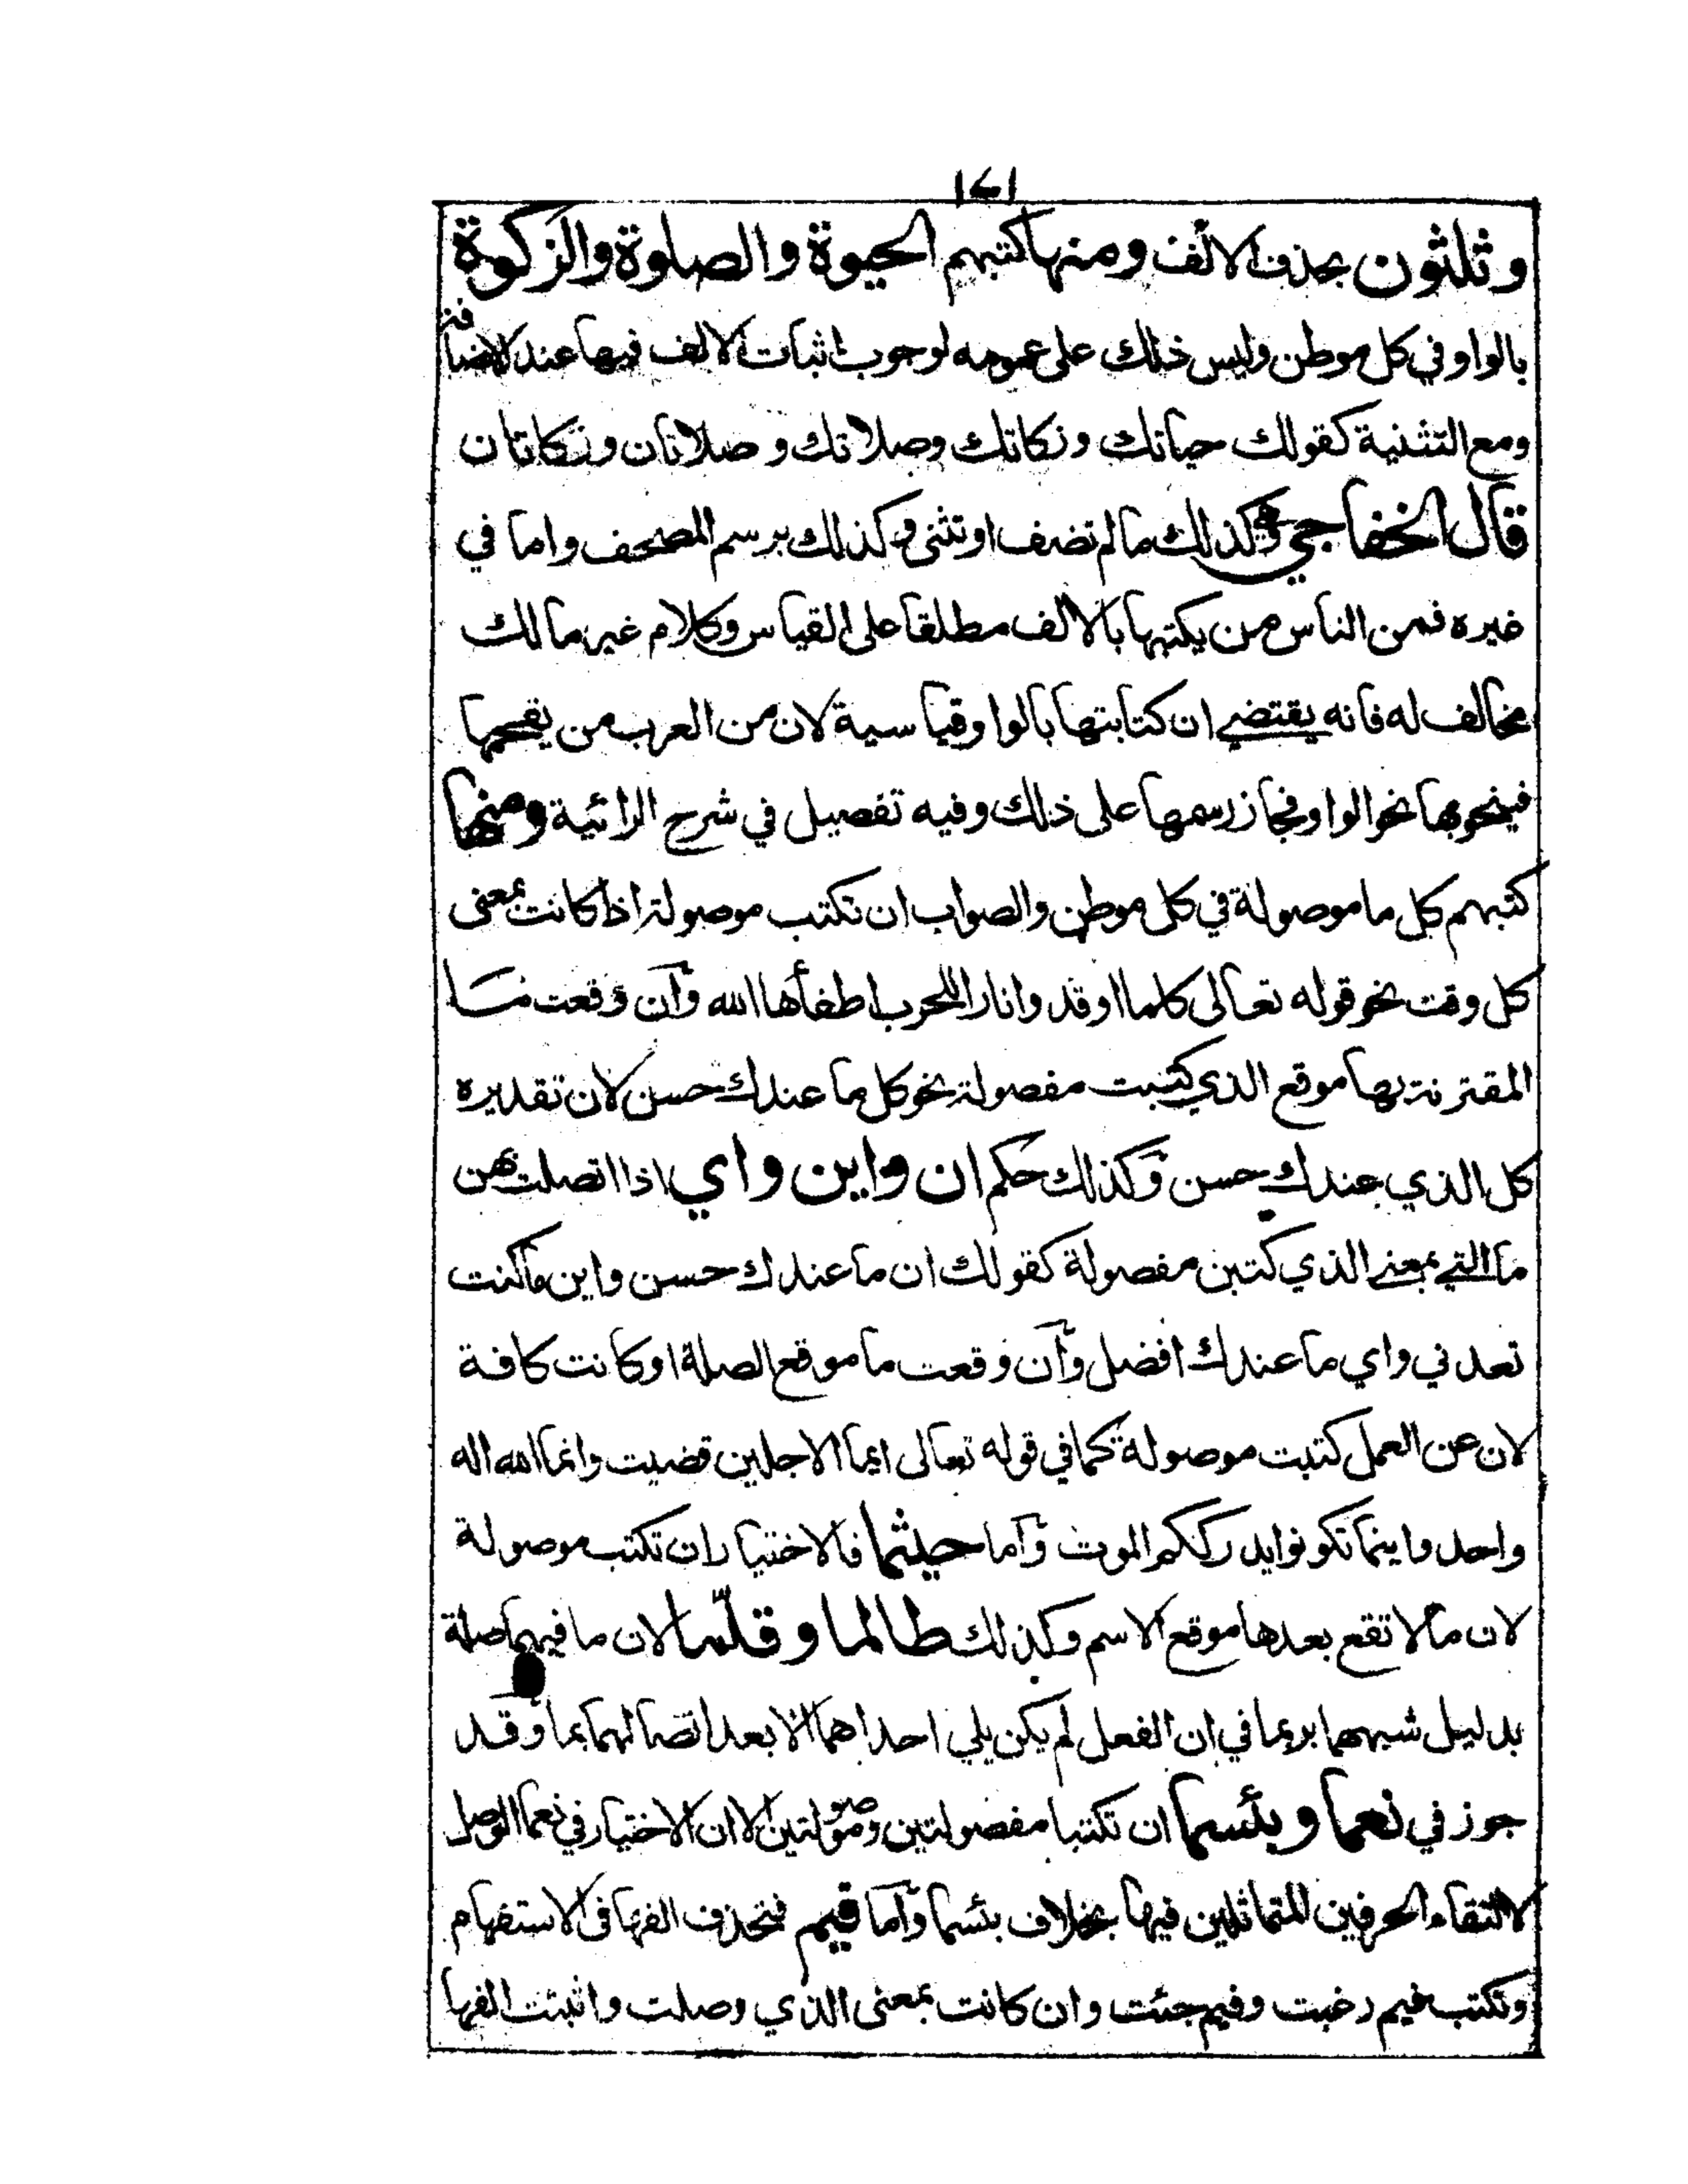 ١٤١
وثلثون بحذف الالف ومنها كتبهم الحيوة والصلوة والزكوة
بالواو في كل موطن وليس ذلك على عمومه لوجوب اثبات الالف فيها عند الاضافة
ومع التثنية كقولك حياتك وزكاتك وصلاتك وصلاتان وزكاتان
قال الخفاجي وكذلك ما لم تضف او تثنى وكذلك برسم المصحف واما في
غيره فمن الناس من يكتبها بالالف مطلقا على القياس وكلام غير مالك
مخالف له فانه يقتضي ان كتابتها بالواو قياسية لان من العرب من يفخمها
فينحو بها نحو الواو فجاز رسمها على ذلك وفيه تفصيل في شرح الرائية ومنها
كتبهم كل ما موصولة في كل موطن والصواب ان تكتب موصولة اذا كانت بمعنى
كل وقت نحو قوله تعالى كلما اوقدوا نارا للحرب اطفأها الله وان وقعت ما
المقترنة بها موقع الذي كتبت مفصولة نحو كل ما عندك حسن لان تقديره
كل الذي عندك حسن وكذلك حكم ان واين واي اذا اتصلت بهن
ما التي بمعنى الذي كتبن مفصولة كقولك ان ما عندك حسن واين ما كنت
تعدني واي ما عندك افضل وان وقعت ما موقع الصلة او كانت كافة
لان عن العمل كتبت موصولة كما في قوله تعالى ايما الاجلين قضيت وانما الله اله
واحد واينما تكونوا يدرككم الموت واما حيثما فالاختيار ان تكتب موصولة
لان ما لا تقع بعدها موقع الاسم وكذلك طالما وقلّما لان ما فيهما صلة
بدليل شبههما بربما في ان الفعل لم يكن يلي احداهما الا بعد اتصالهما بما وقد
جوز في نعما وبئسما ان تكتبا مفصولتين وموصولتين الا ان الاختيار في نعما الوصل
لالتقاء الحرفين المتماثلين فيها بخلاف بئسما واما فيم فتحذف الفها في الاستفهام
وتكتب فيم رغبت وفيم جئت وان كانت بمعنى الذي وصلت واثبتت الفها